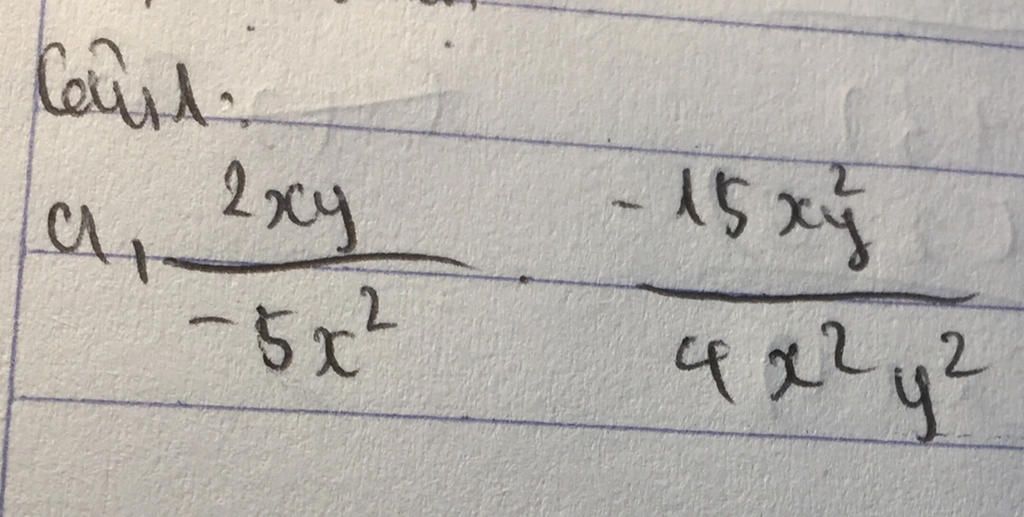 Câu 1:
a, \frac{2xy}{-5x^2} \cdot \frac{-15xy^2}{4x^2y^2}